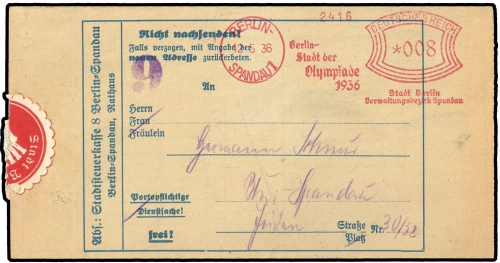 2416
Nicht nachsenden!
Falls verzogen, mit Angabe der
neuen Adresse zurückerbeten.
9
BERLIN-
12.5.36
SPANDAU 1
Berlin-
Stadt der
Olympiade
1936
DEUTSCHES REICH
*008
Stadt Berlin
Verwaltungsbezirk Spandau
An
Herrn
Frau
Fräulein
Hermann
Spandau
Portopflichtige
Dienstsache!
frei!
Jüden
Straße
Platz
Nr. 30/32
Abs.: Stadtsteuerkasse 8 Berlin-Spandau
Berlin-Spandau, Rathaus
Stadt B